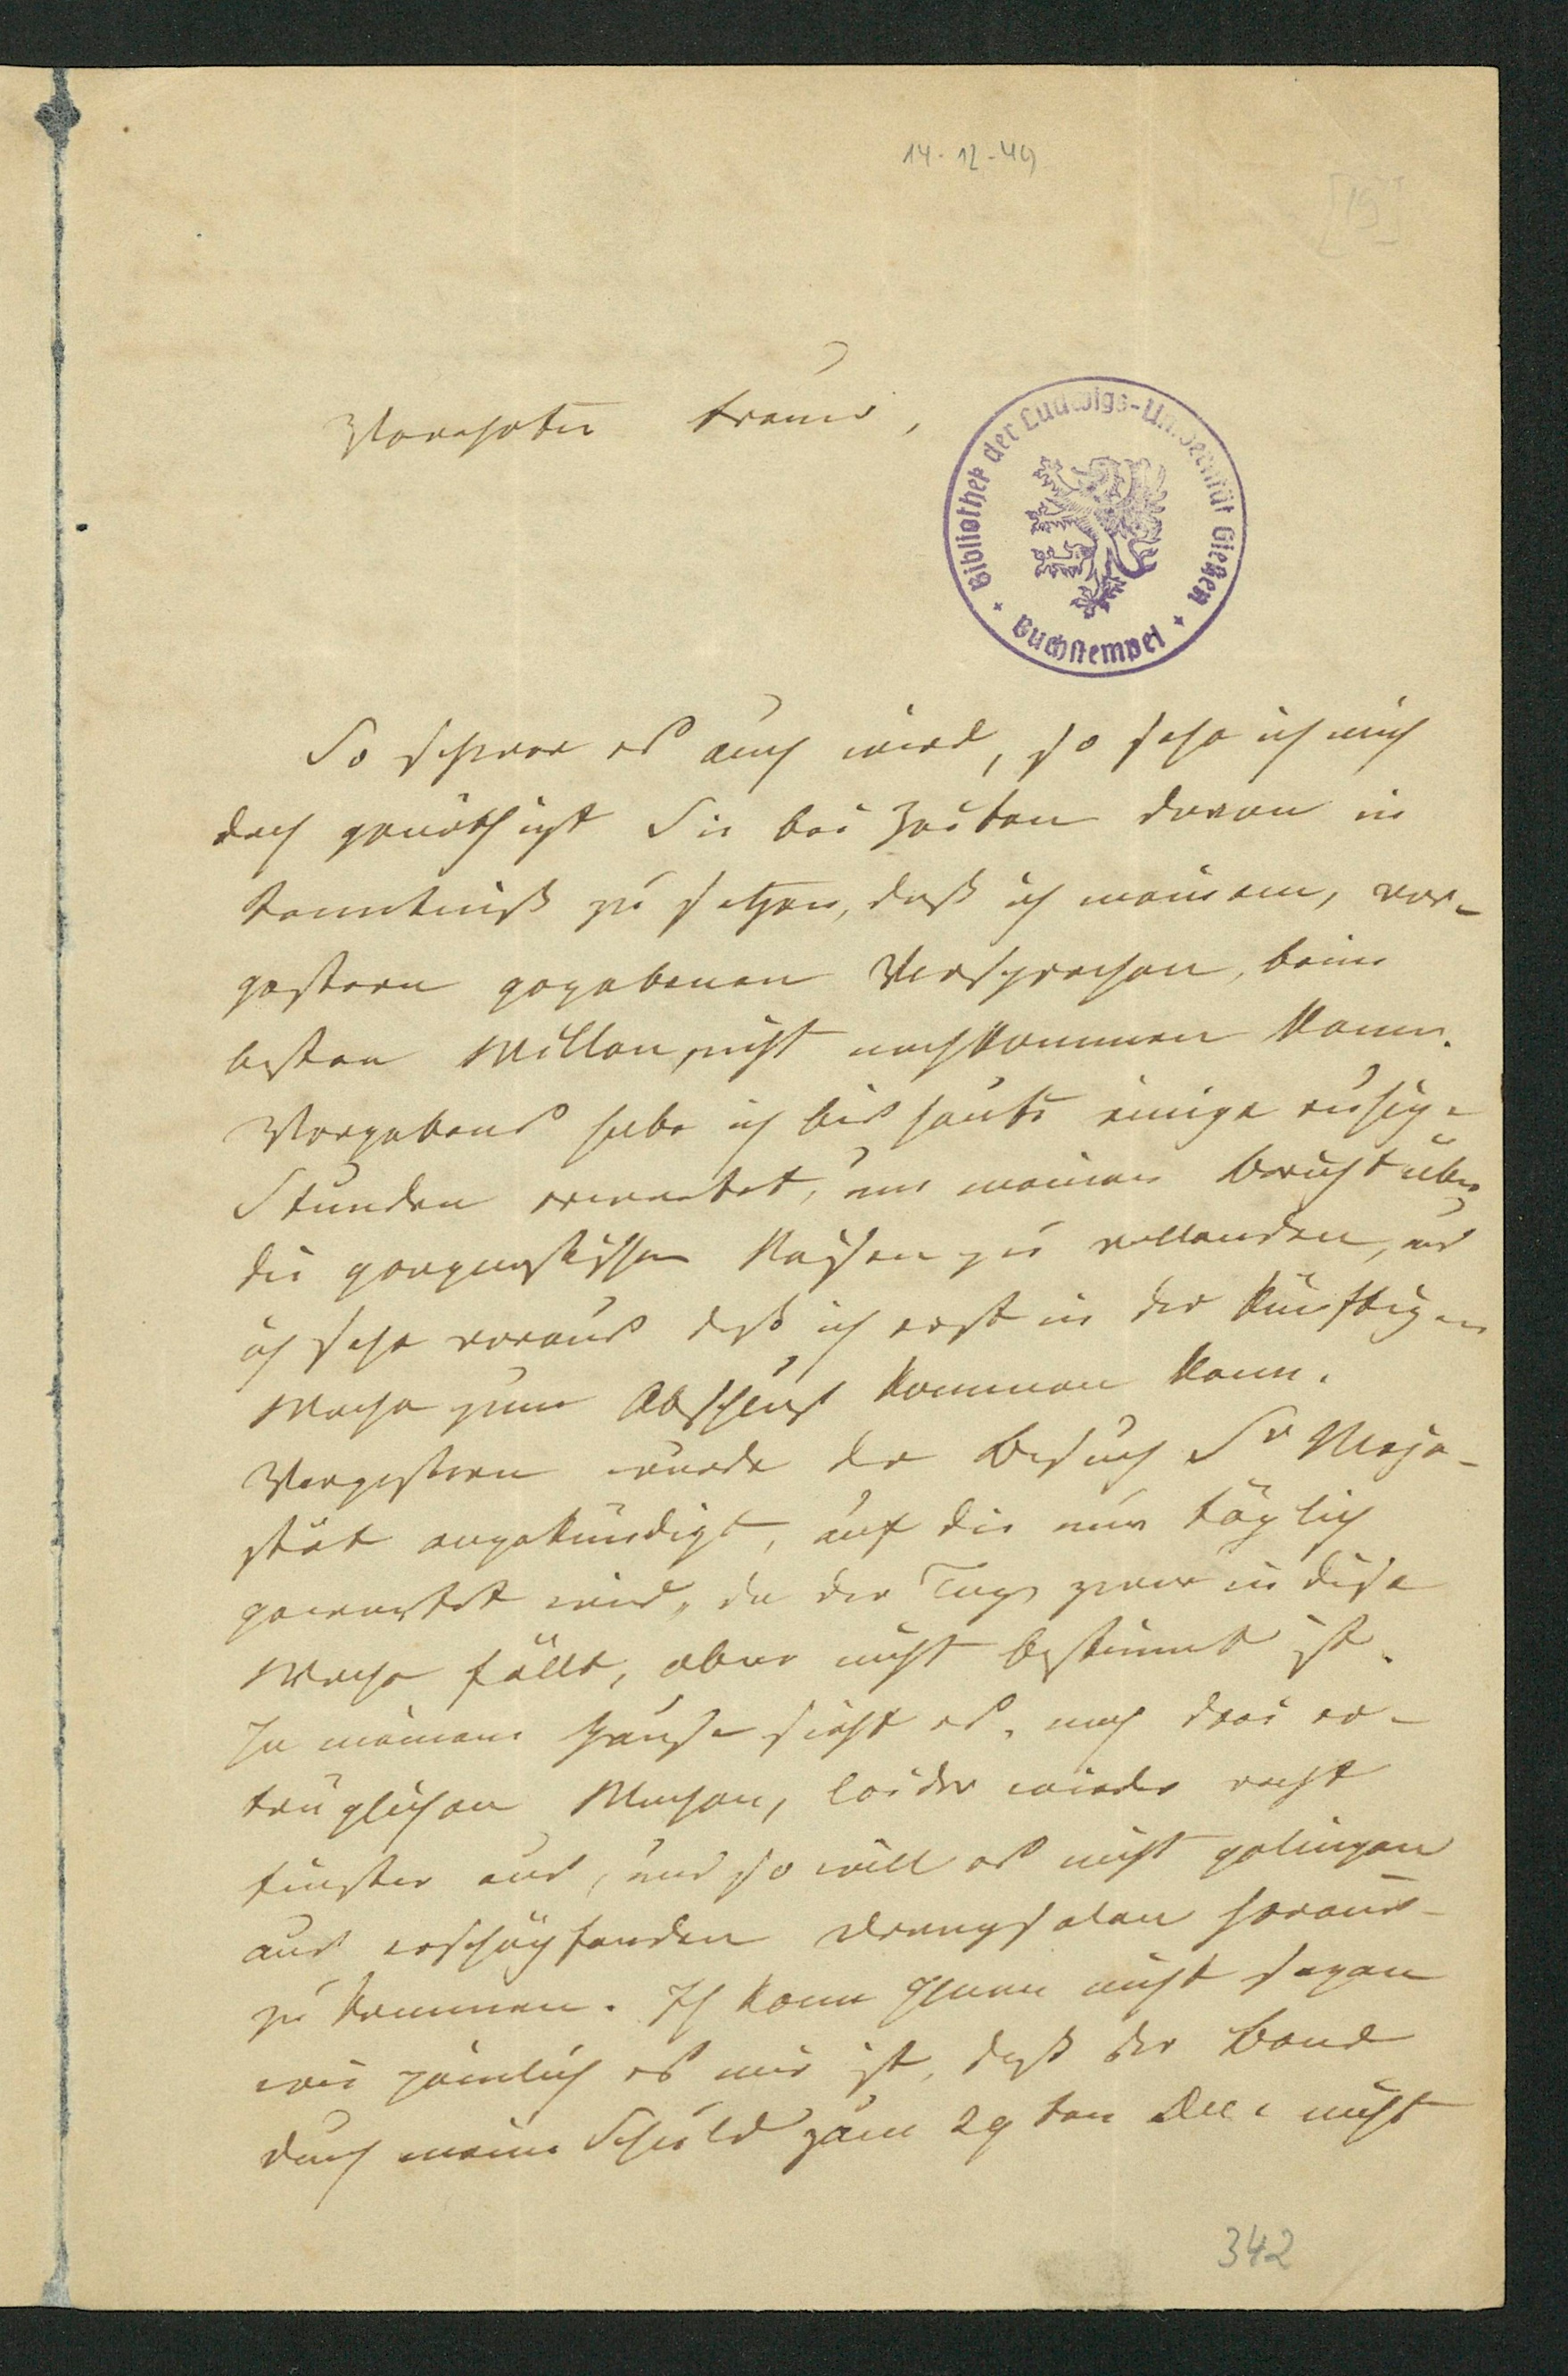 14-12-49
[15]
Verehrter Freund,
Bibliothek der Ludwigs-Universität Gießen
Buchstempel
So schwer es auch wird, so sehe ich mich
doch genöthigt Sie bei Zeiten davon in
Kenntniß zu setzen, daß ich meinem, vor-
gestern gegebenen Versprechen, beim
besten Willen, nicht nachkommen kann.
Vergebens habe ich bis heute einige ruhige
Stunden erwartet, um meinen Bericht über
die Vasen zu vollenden, und
ich sehe voraus daß ich erst in der künftigen
Woche zum Abschluß kommen kann.
Vorgestern wurde der Besuch Sr Maje-
stät angekündigt, auf die nun täglich
gewartet wird, da der Tag zwar in diese
Woche fällt, aber nicht bestimmt ist.
In meinem Hause sieht es, nach drei er-
träglichen Wochen, leider wieder recht
finster aus, und so will es nicht gelingen
aus erschöpfenden Drangsalen heraus-
zu kommen. Ich kann Ihnen nicht sagen
wie peinlich es mir ist, daß der Band
durch meine Schuld zum 29ten Dec. nicht
342